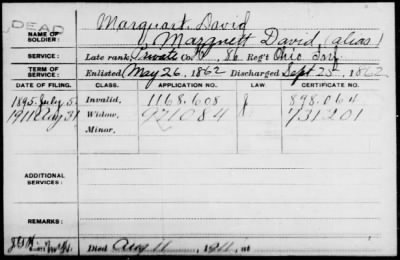 DEAD
NAME OF SOLDIER: Marquart David
Margnett David (alias)
SERVICE: Late rank, Private Co. 86 Reg't Ohio Inf.
TERM OF SERVICE: Enlisted May 26, 1862 Discharged Sept 25, 1862
DATE OF FILING. CLASS. APPLICATION NO. LAW CERTIFICATE NO.
1895 July 5. Invalid, 1168.608 898.064
1911 Aug 31 Widow, 971084 731201
Minor,
ADDITIONAL SERVICES:
REMARKS:
Died Aug 11 1911, at